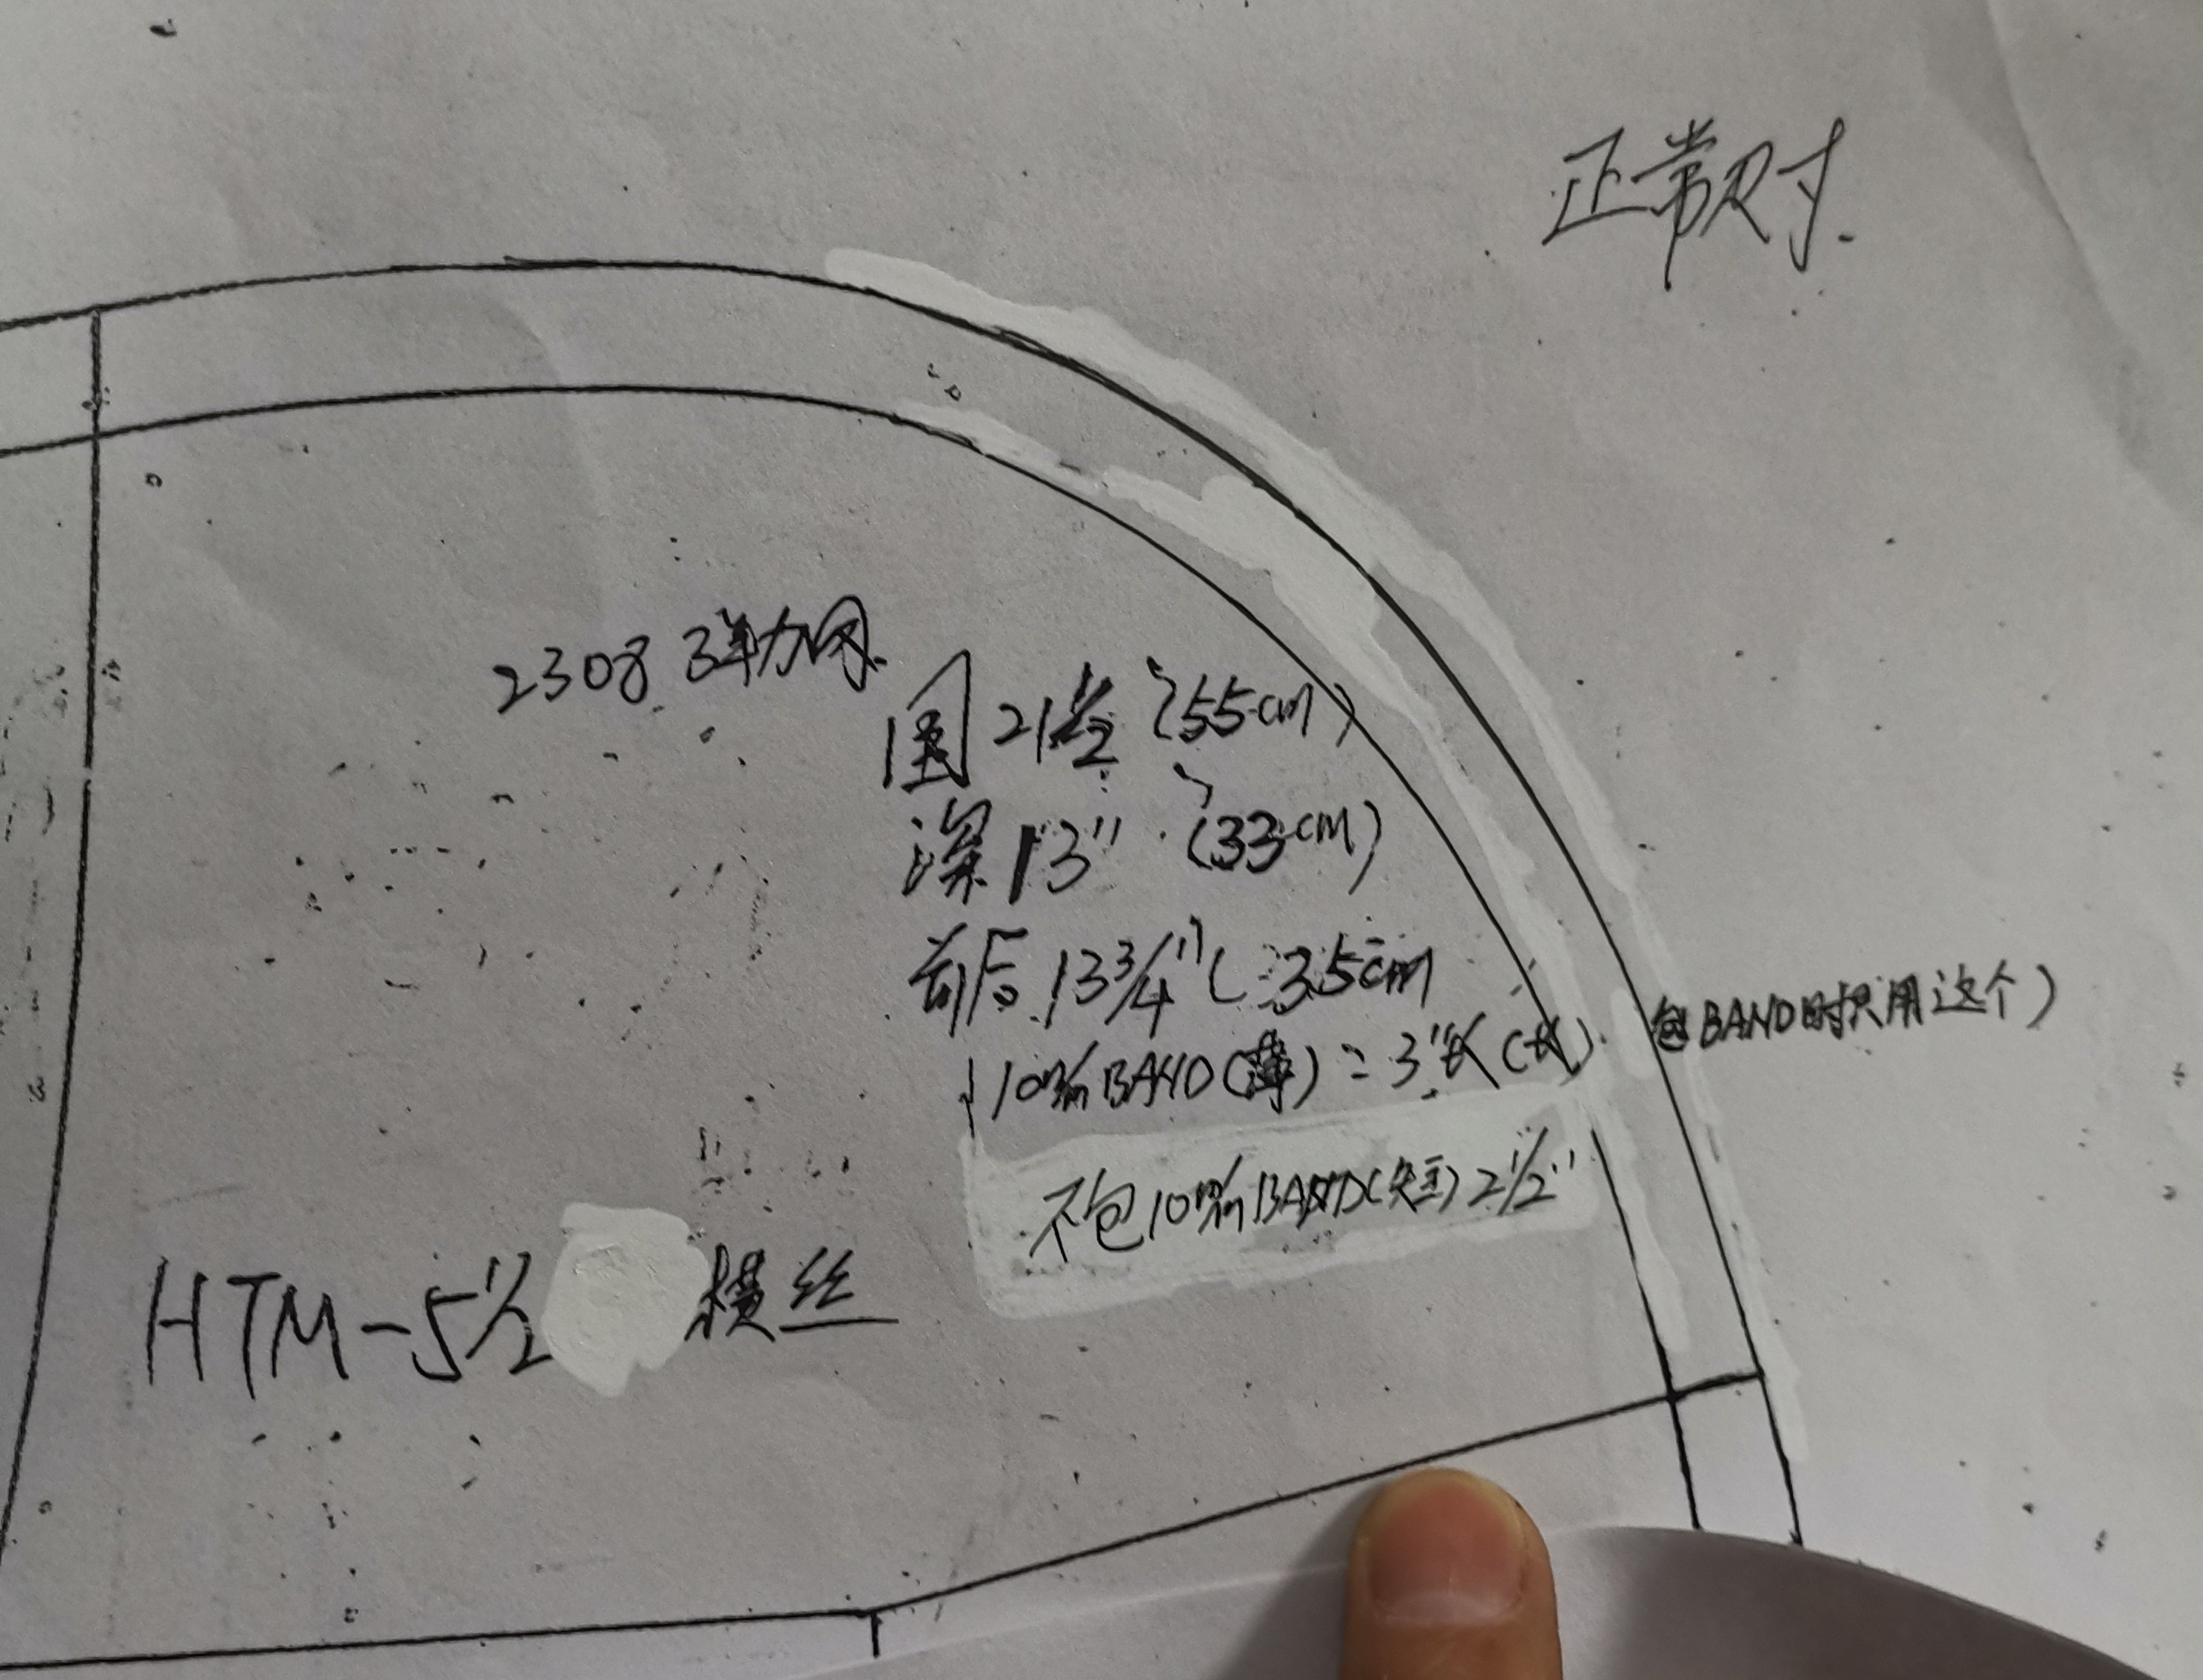 正常尺寸.
2308 弹力网.
围 21½" (55cm)
深 13" (33cm)
前后 13¾" (35cm
10m/m BAND(薄) = 3"长 (包BAND时只用这个)
不包10m/m BAND(短) 2½"
HTM-5½ 横丝